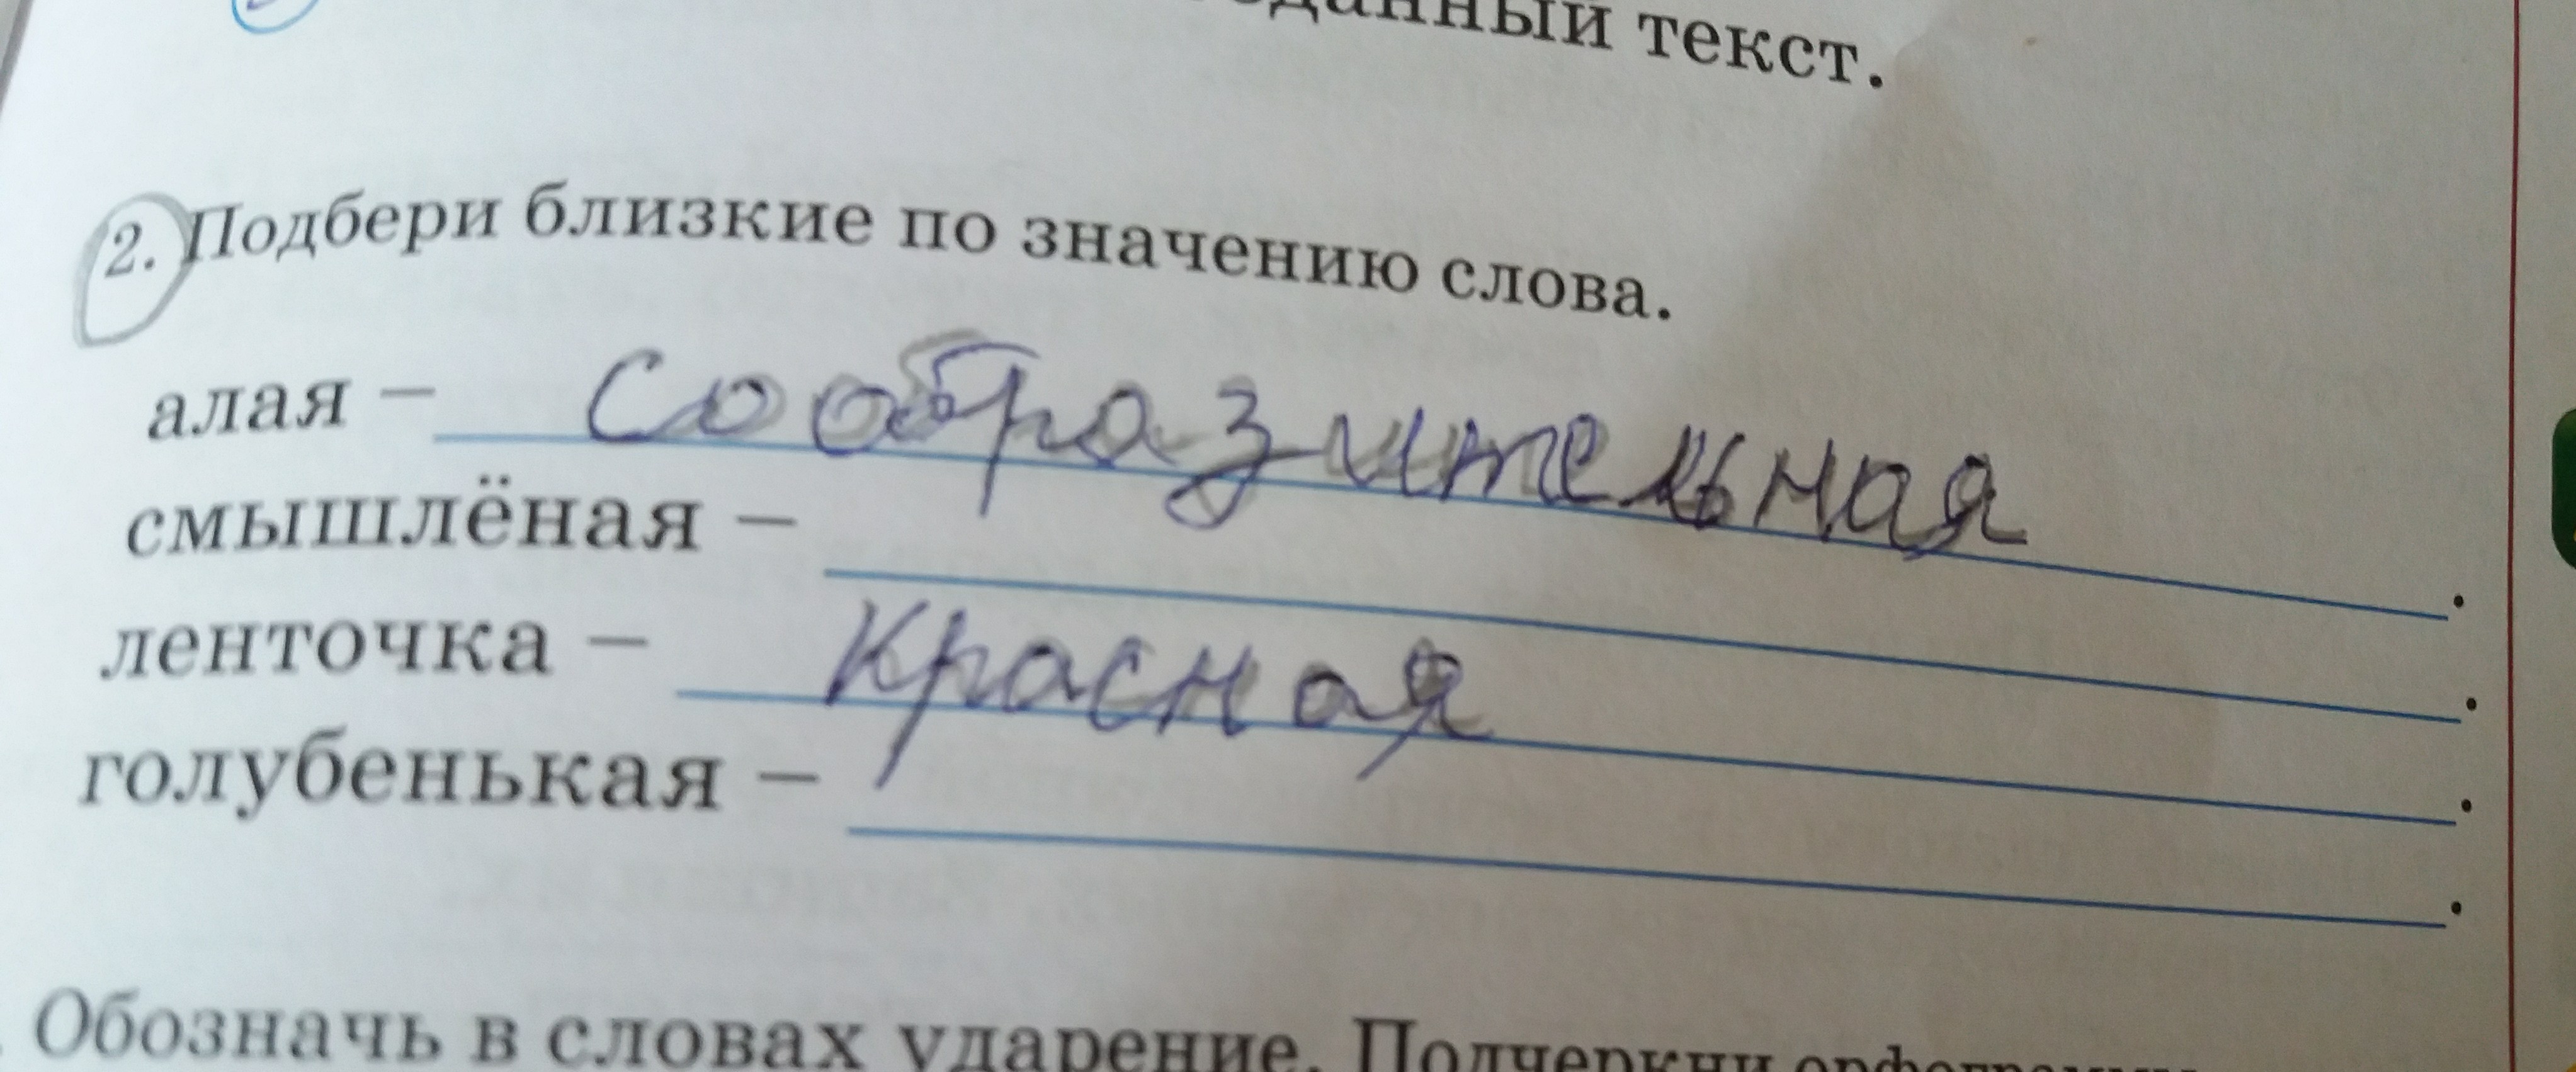 текст.
2. Подбери близкие по значению слова.
алая – сообразительная .
смышлёная – .
ленточка – красная .
голубенькая – .
Обозначь в словах ударение. Подчеркни